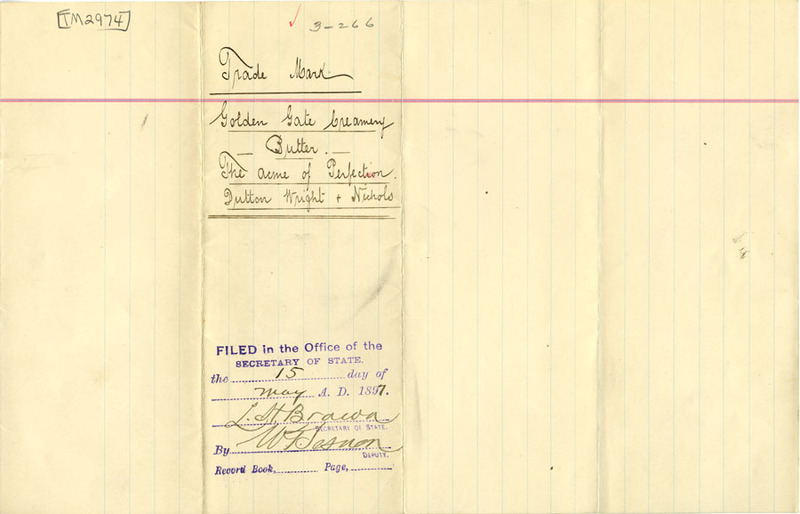 TM2974
3-266
Trade Mark
Golden Gate Creamery
— Butter. —
The acme of Perfection.
Dutton Wright + Nichols
FILED in the Office of the
SECRETARY OF STATE.
the 15 day of
May A. D. 1897.
L. H. Brown
SECRETARY OF STATE.
By
DEPUTY.
Record Book, Page,